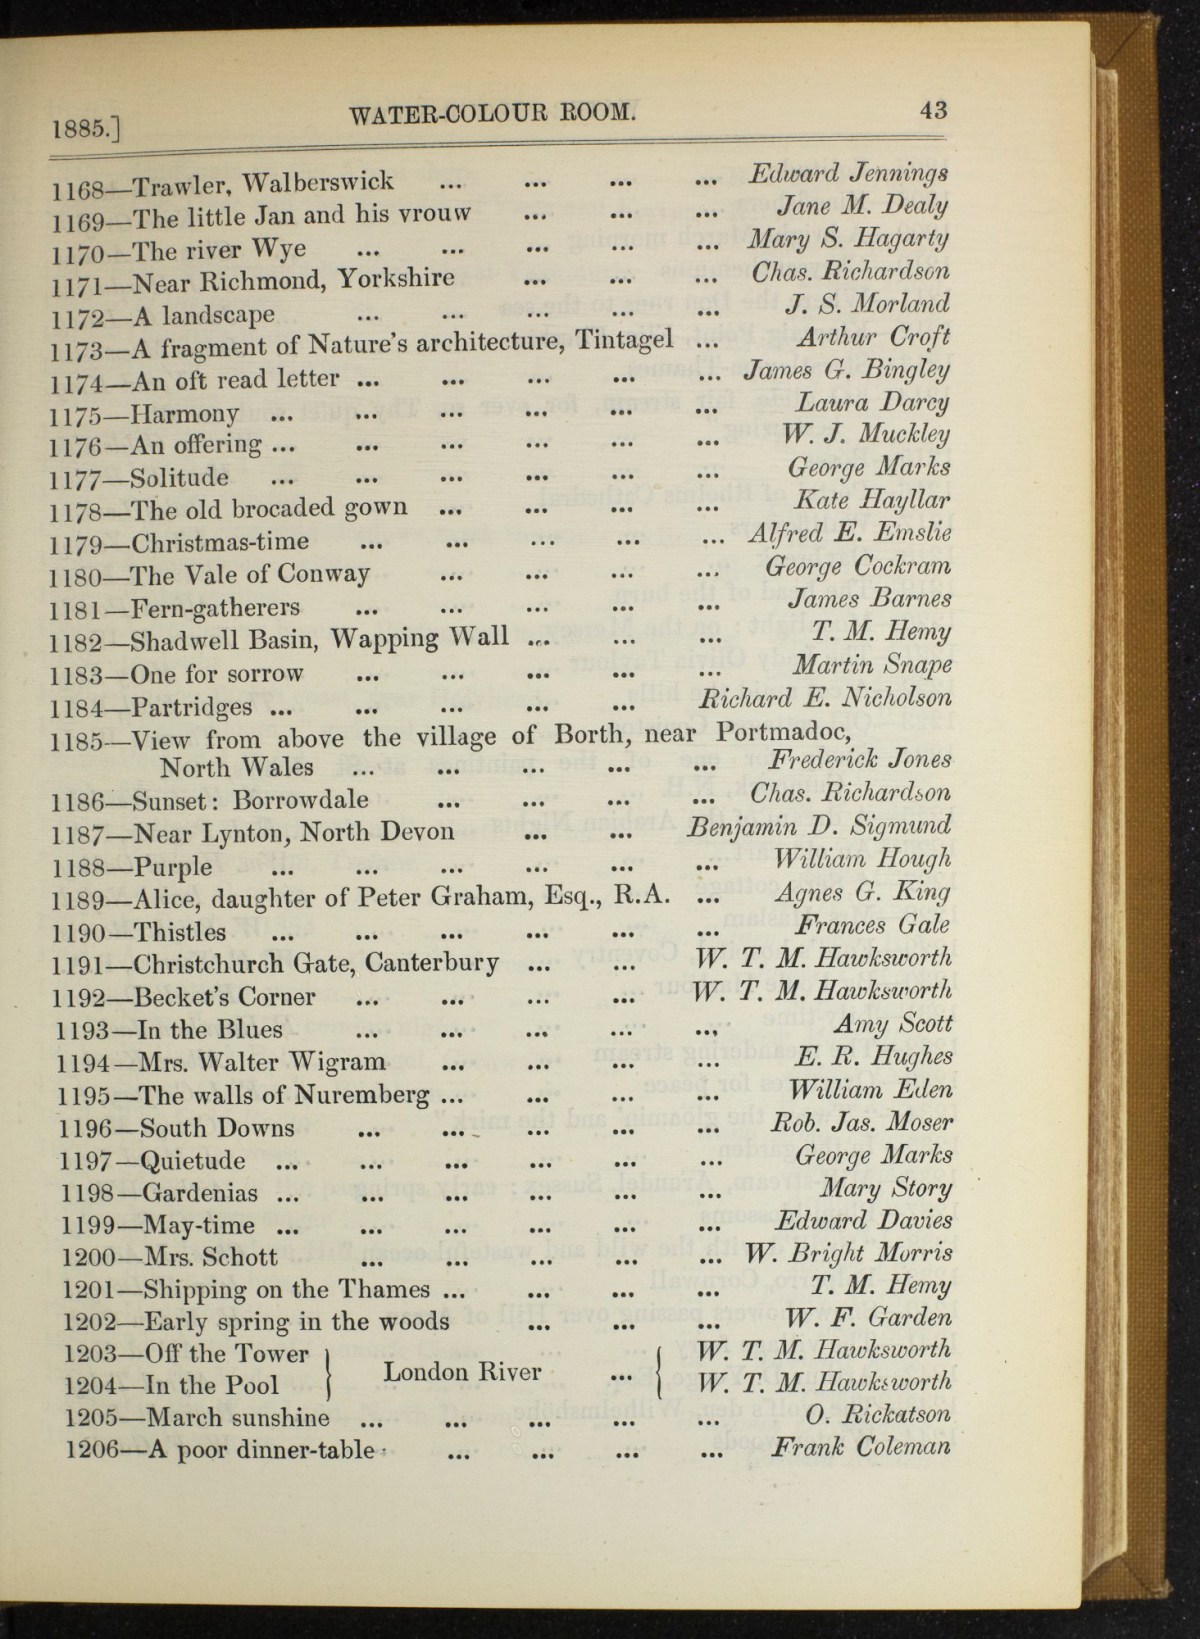 1885.] WATER-COLOUR ROOM. 43
1168—Trawler, Walberswick ... ... ... ... Edward Jennings
1169—The little Jan and his vrouw ... ... ... Jane M. Dealy
1170—The river Wye ... ... ... ... ... Mary S. Hagarty
1171—Near Richmond, Yorkshire ... ... ... Chas. Richardson
1172—A landscape ... ... ... ... ... J. S. Morland
1173—A fragment of Nature's architecture, Tintagel ... Arthur Croft
1174—An oft read letter ... ... ... ... ... James G. Bingley
1175—Harmony ... ... ... ... ... ... Laura Darcy
1176—An offering ... ... ... ... ... ... W. J. Muckley
1177—Solitude ... ... ... ... ... ... George Marks
1178—The old brocaded gown ... ... ... ... Kate Hayllar
1179—Christmas-time ... ... ... ... ... Alfred E. Emslie
1180—The Vale of Conway ... ... ... ... George Cockram
1181—Fern-gatherers ... ... ... ... ... James Barnes
1182—Shadwell Basin, Wapping Wall ... ... ... T. M. Hemy
1183—One for sorrow ... ... ... ... ... Martin Snape
1184—Partridges ... ... ... ... ... Richard E. Nicholson
1185—View from above the village of Borth, near Portmadoc,
North Wales ... ... ... ... ... Frederick Jones
1186—Sunset: Borrowdale ... ... ... ... Chas. Richardson
1187—Near Lynton, North Devon ... ... Benjamin D. Sigmund
1188—Purple ... ... ... ... ... ... William Hough
1189—Alice, daughter of Peter Graham, Esq., R.A. ... Agnes G. King
1190—Thistles ... ... ... ... ... ... Frances Gale
1191—Christchurch Gate, Canterbury ... ... W. T. M. Hawksworth
1192—Becket's Corner ... ... ... ... W. T. M. Hawksworth
1193—In the Blues ... ... ... ... ... Amy Scott
1194—Mrs. Walter Wigram ... ... ... ... E. R. Hughes
1195—The walls of Nuremberg ... ... ... ... William Eden
1196—South Downs ... ... ... ... ... Rob. Jas. Moser
1197—Quietude ... ... ... ... ... ... George Marks
1198—Gardenias ... ... ... ... ... ... Mary Story
1199—May-time ... ... ... ... ... ... Edward Davies
1200—Mrs. Schott ... ... ... ... ... W. Bright Morris
1201—Shipping on the Thames ... ... ... ... T. M. Hemy
1202—Early spring in the woods ... ... ... W. F. Garden
1203—Off the Tower } London River ... { W. T. M. Hawksworth
1204—In the Pool } { W. T. M. Hawksworth
1205—March sunshine ... ... ... ... ... O. Rickatson
1206—A poor dinner-table ... ... ... ... Frank Coleman